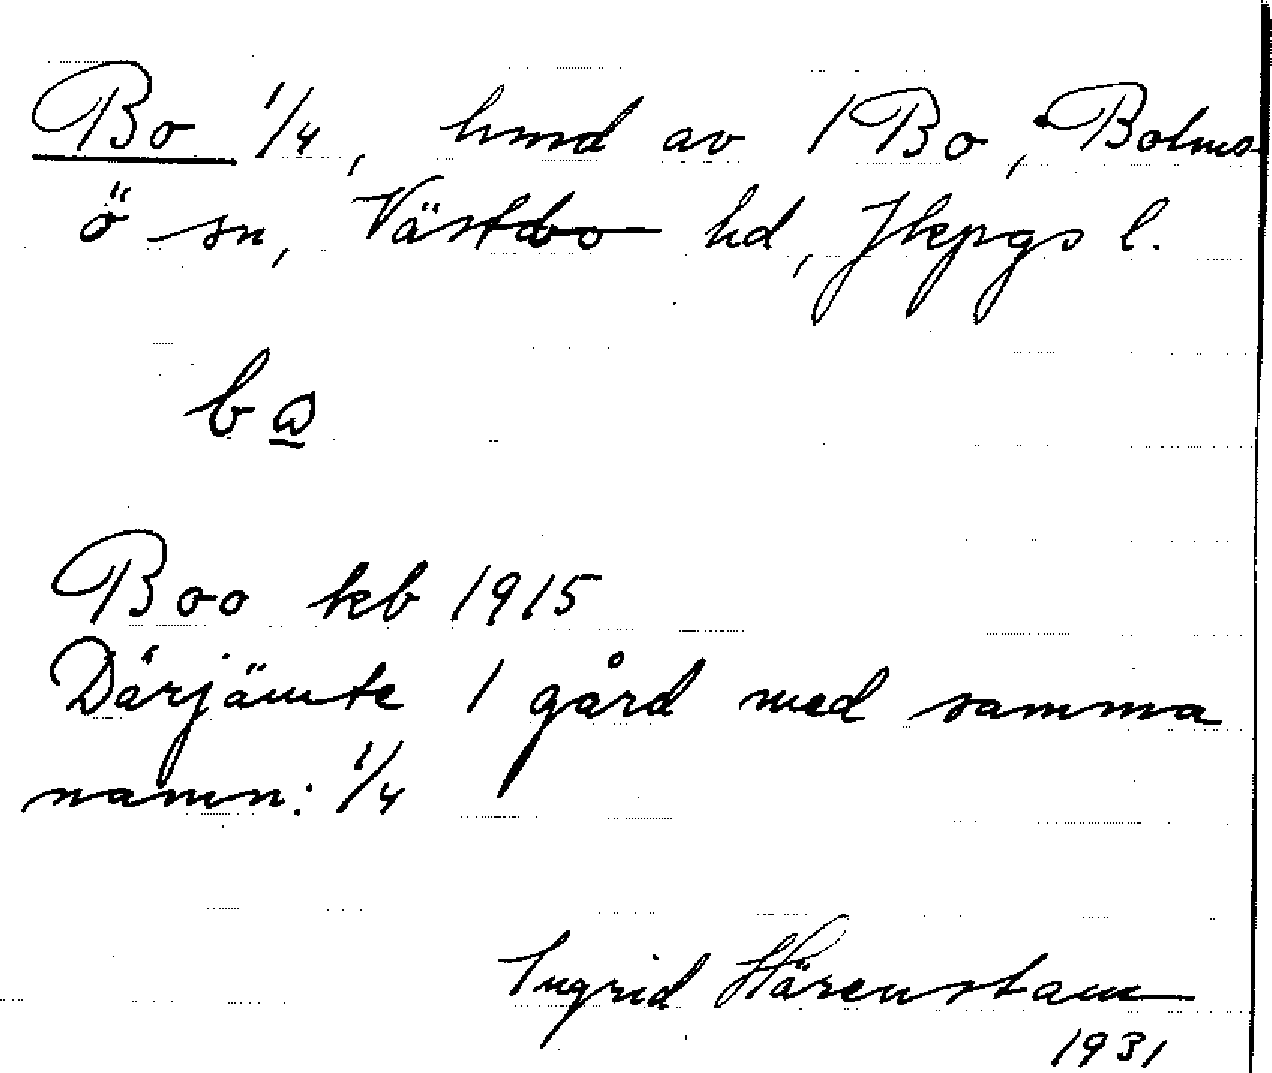 Bo 1/4, hmd av 1 Bo, Bolms-
ö sn, Västbo hd, Jkpgs l.
Boo kb 1915
Därjämte 1 gård med samma
namn: 1/4
Ingrid Härenstam
1931